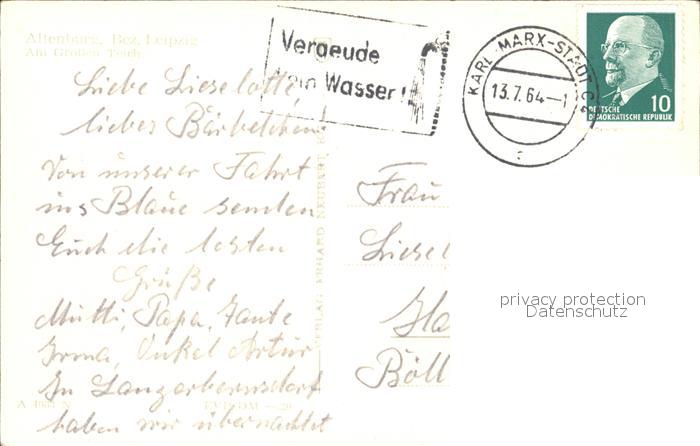 Altenburg, Bez. Leipzig
Am Großen Teich
Vergeude
kein Wasser!
KARL-MARX-STADT C2
13.7.64-1
10
DEUTSCHE
DEMOKRATISCHE REPUBLIK
Liebe Lieselotte,
liebes Bärbelchen!
Von unserer Fahrt
ins Blaue senden
Euch die besten
Grüße
Mutti, Papa, Tante
Irma, Onkel Artur
In Langenbernsdorf
haben wir übernachtet
VERLAG ERHARD NEUBERT K
Frau
Liesel
Ha
Böll
privacy protection
Datenschutz